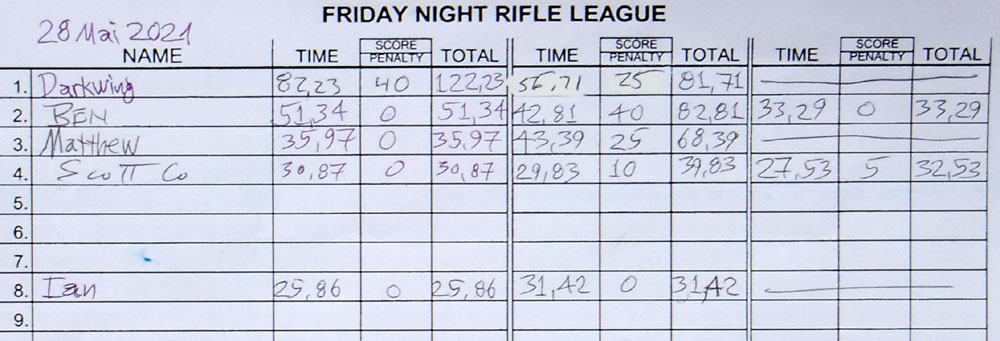 FRIDAY NIGHT RIFLE LEAGUE
28 Mai 2021
NAME TIME SCORE PENALTY TOTAL TIME SCORE PENALTY TOTAL TIME SCORE PENALTY TOTAL
1. Darkwing 82,23 40 122,23 56,71 25 81,71
2. BEN 51,34 0 51,34 42,81 40 82,81 33,29 0 33,29
3. Matthew 35,97 0 35,97 43,39 25 68,39
4. Scott Co 30,87 0 30,87 29,83 10 39,83 27,53 5 32,53
5.
6.
7.
8. Ian 25,86 0 25,86 31,42 0 31,42
9.